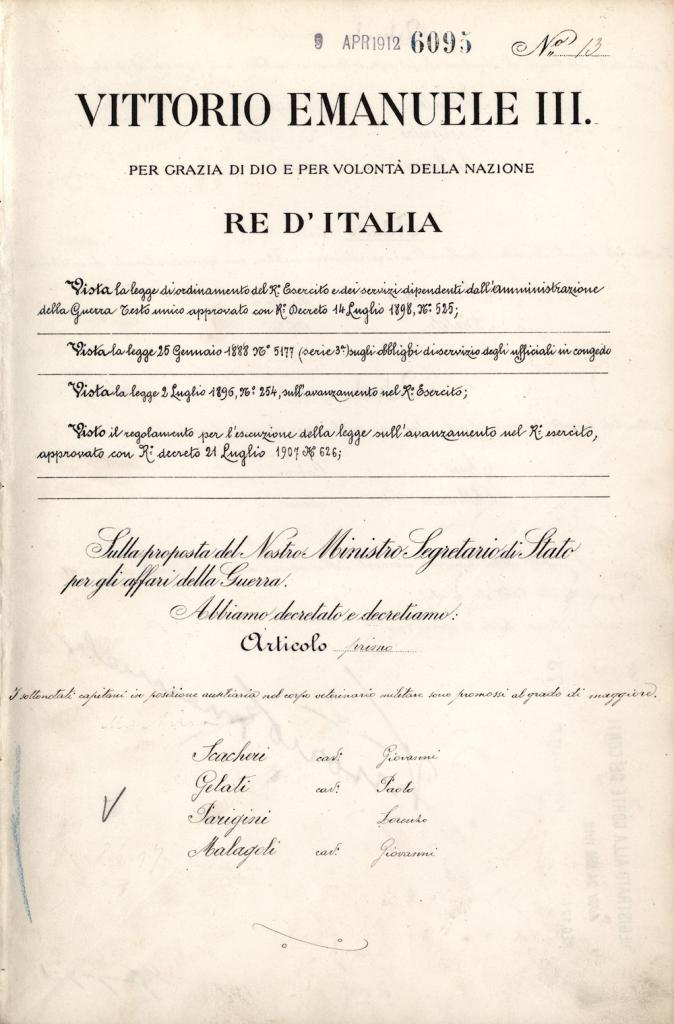 9 APR 1912 6095 No. 13
VITTORIO EMANUELE III.
PER GRAZIA DI DIO E PER VOLONTÀ DELLA NAZIONE
RE D'ITALIA
Vista la legge di ordinamento del R.º Esercito e dei servizi dipendenti dall'Amministrazione
della Guerra Testo unico approvato con R.º Decreto 14 Luglio 1898, N.º 525;
Vista la legge 25 Gennaio 1888 N.º 5177 (serie 3ª) sugli obblighi di servizio degli ufficiali in congedo
Vista la legge 2 Luglio 1896, N.º 254, sull'avanzamento nel R.º Esercito;
Visto il regolamento per l'esecuzione della legge sull'avanzamento nel R.º esercito,
approvato con R.º decreto 21 Luglio 1907 Nº 626;
Sulla proposta del Nostro Ministro Segretario di Stato
per gli affari della Guerra.
Abbiamo decretato e decretiamo:
Articolo primo
I sottonotati capitani in posizione ausiliaria nel corpo veterinario militare sono promossi al grado di maggiore.
Scacheri cav.º Giovanni
Gelati cav.º Paolo
Parigini Lorenzo
Malagoli cav.º Giovanni